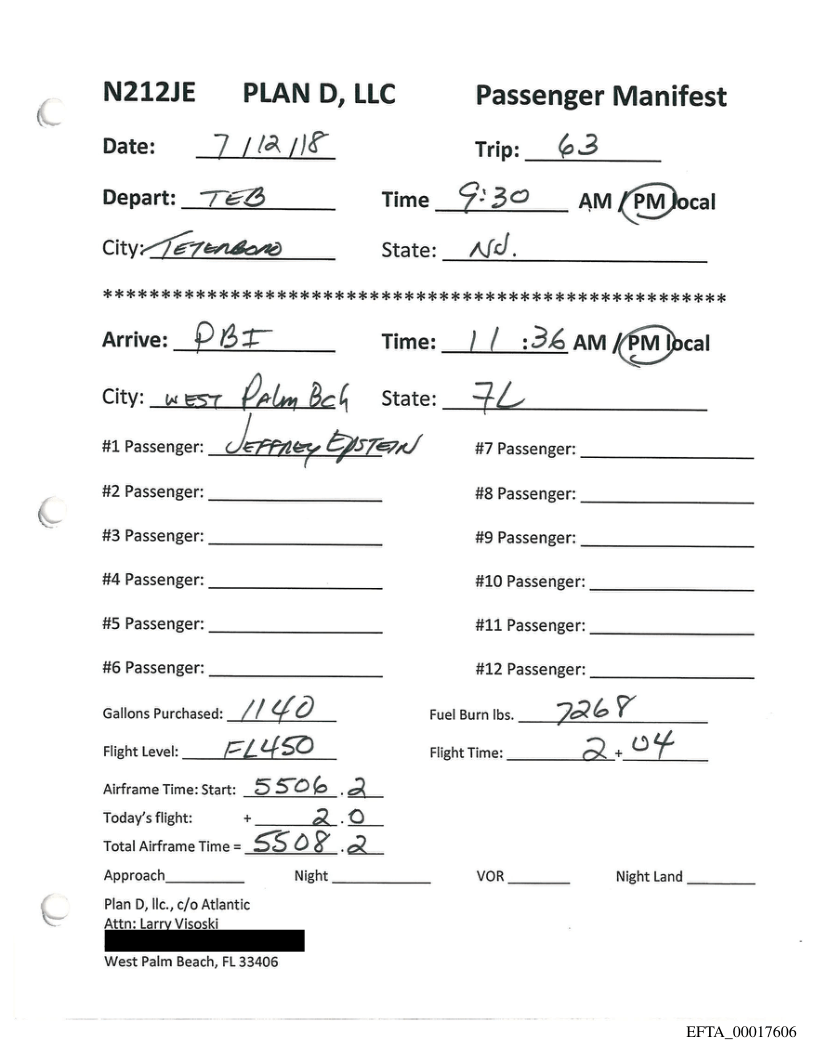 N212JE PLAN D, LLC Passenger Manifest
Date: 7/12/18 Trip: 63
Depart: TEB Time 9:30 AM / PM local
City: TETERBORO State: NJ.
******************************************************
Arrive: PBI Time: 11:36 AM / PM local
City: WEST Palm Bch State: FL
#1 Passenger: JEFFREY EPSTEIN #7 Passenger:
#2 Passenger: #8 Passenger:
#3 Passenger: #9 Passenger:
#4 Passenger: #10 Passenger:
#5 Passenger: #11 Passenger:
#6 Passenger: #12 Passenger:
Gallons Purchased: 1140 Fuel Burn lbs. 7268
Flight Level: FL450 Flight Time: 2 + 04
Airframe Time: Start: 5506.2
Today's flight: + 2.0
Total Airframe Time = 5508.2
Approach Night VOR Night Land
Plan D, llc., c/o Atlantic
Attn: Larry Visoski
West Palm Beach, FL 33406
EFTA_00017606